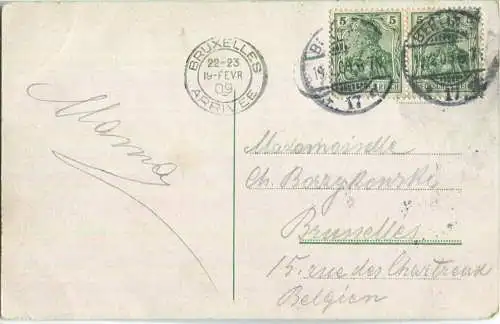 BRUXELLES
22-23
19-FEVR
09
ARRIVEE
5
5
17
17
Mama
Mademoiselle
Ch. Barzykowski
Bruxelles
15. rue des Chartreux
Belgien